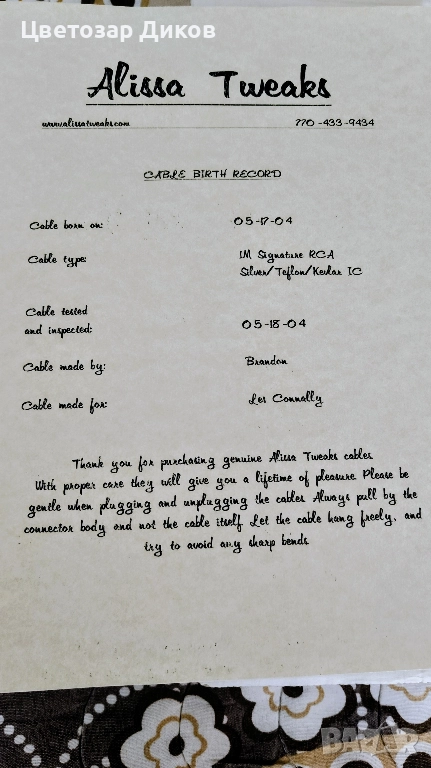 Цветозар Диков
Alissa Tweaks
www.alissatweaks.com 770-433-9434
CABLE BIRTH RECORD
Cable born on: 05-17-04
Cable type: 1M Signature RCA
Silver/Teflon/Kevlar IC
Cable tested
and inspected: 05-18-04
Cable made by: Brandon
Cable made for: Les Connally
Thank you for purchasing genuine Alissa Tweaks cables
With proper care they will give you a lifetime of pleasure Please be
gentle when plugging and unplugging the cables Always pull by the
connector body and not the cable itself Let the cable hang freely, and
try to avoid any sharp bends
BAZAR